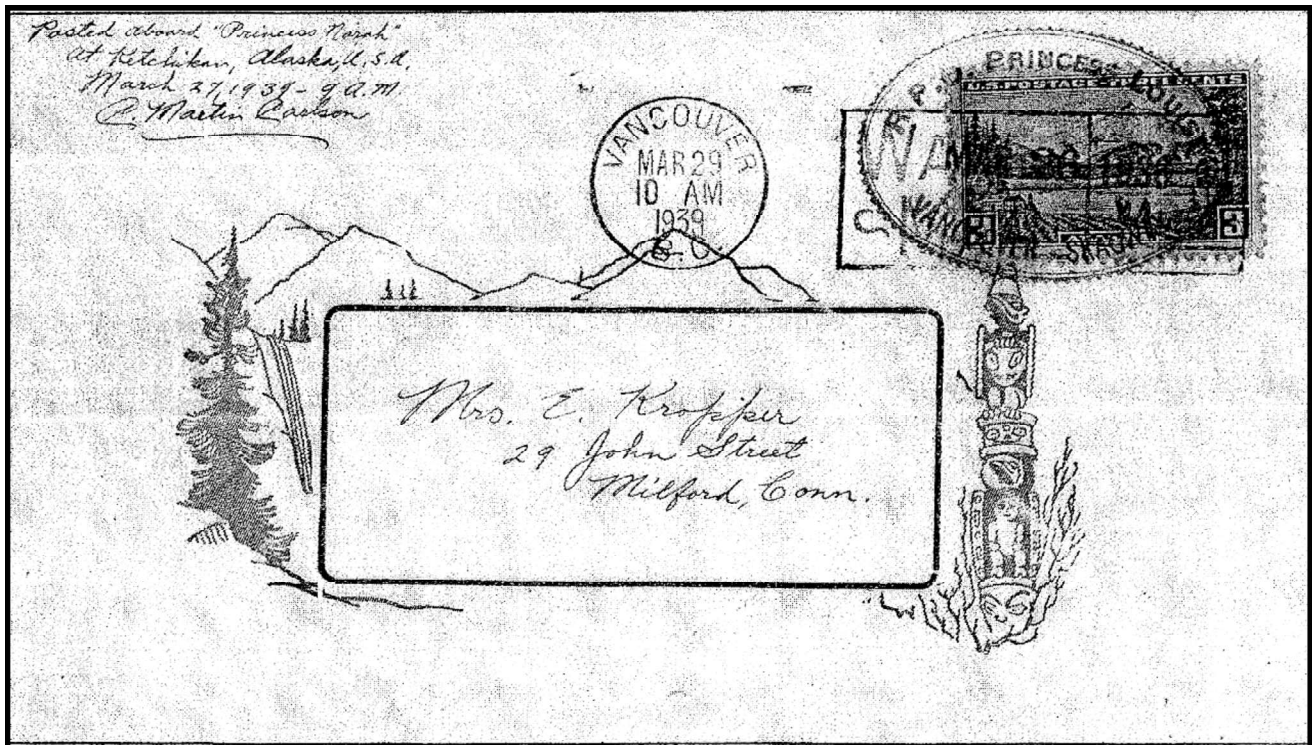 Posted aboard "Princess Norah"
At Ketchikan, Alaska, U.S.A.
March 27, 1939 - 9 A.M.
C. Martin Carlson
VANCOUVER
MAR 29
10 AM
1939
B.C.
PRINCESS LOUISE
U.S. POSTAGE THREE CENTS
VANCOUVER SKAGWAY
3 3
Mrs. E. Kropper
29 John Street
Milford, Conn.